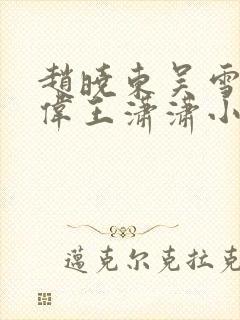 趙曉東吴雪
偉王潇潇小
邁克尔克拉克